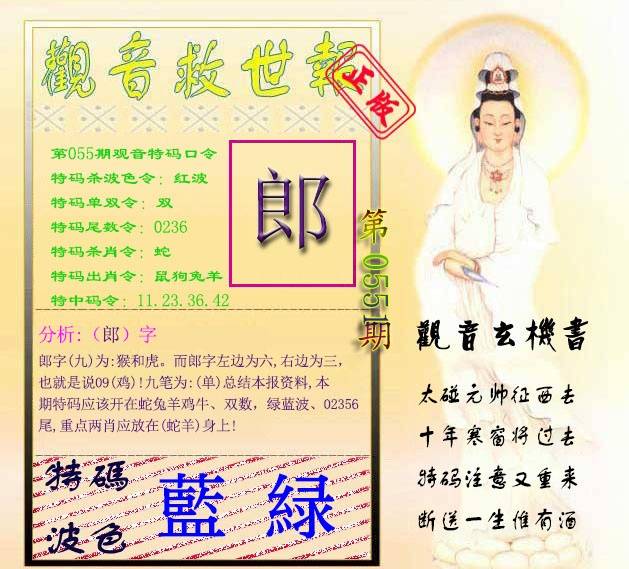 觀音救世報
正版
第055期观音特码口令
特码杀波色令：红波
特码单双令：双
特码尾数令：0236
特码杀肖令：蛇
特码出肖令：鼠狗兔羊
特中码令：11.23.36.42
郎
第055期
分析:（郎）字
郎字(九)为:猴和虎。而郎字左边为六,右边为三，
也就是说09(鸡)!九笔为:(单)总结本报资料,本
期特码应该开在蛇兔羊鸡牛、双数，绿蓝波、02356
尾,重点两肖应放在(蛇羊)身上!
特碼
波色
藍緑
觀音玄機書
太碰元帅征西去
十年寒窗将过去
特码注意又重来
断送一生惟有酒